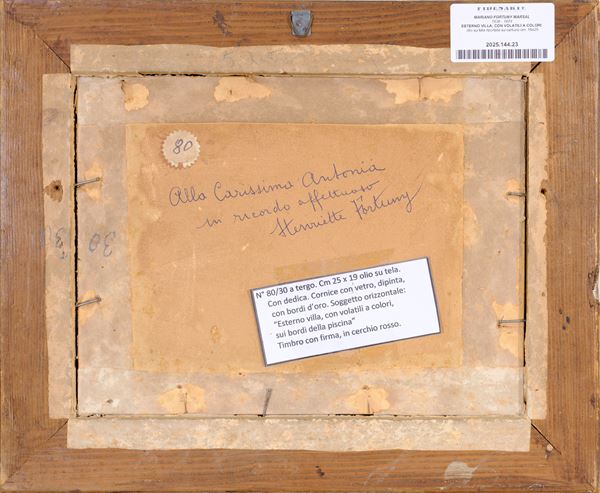 FIRENARTE
MARIANO FORTUNY MARSAL
ESTERNO VILLA, CON VOLATILI A COLORI
2025.144.23
80
Alla Carissima Antonia
in ricordo affettuoso
Henriette Fortuny
30
N° 80/30 a tergo. Cm 25 x 19 olio su tela.
Con dedica. Cornice con vetro, dipinta,
con bordi d'oro. Soggetto orizzontale:
"Esterno villa, con volatili a colori,
sui bordi della piscina"
Timbro con firma, in cerchio rosso.